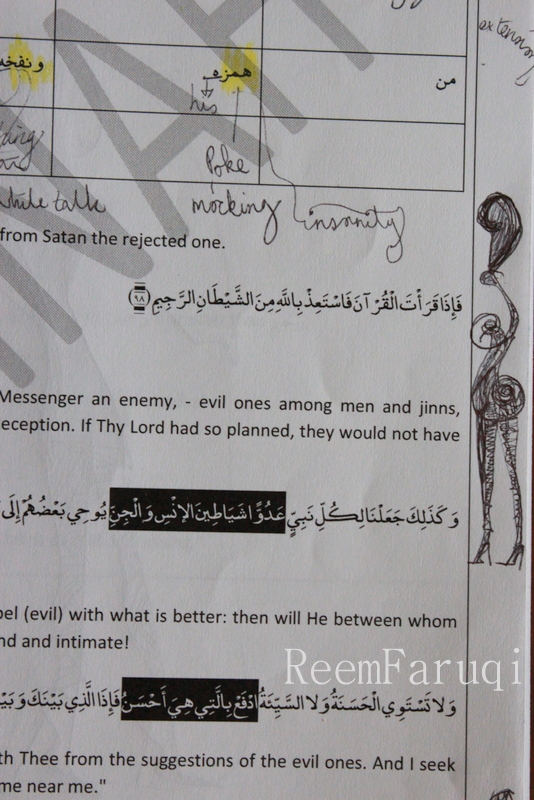 extension
من همزه و نفخه
his
Poke
while talk mocking insanity
from Satan the rejected one.
فَإِذَا قَرَأْتَ الْقُرْآنَ فَاسْتَعِذْ بِاللَّهِ مِنَ الشَّيْطَانِ الرَّجِيمِ (٩٨)
Messenger an enemy, - evil ones among men and jinns,
eception. If Thy Lord had so planned, they would not have
وَكَذَلِكَ جَعَلْنَا لِكُلِّ نَبِيٍّ عَدُوًّا شَيَاطِينَ الإنْسِ وَالْجِنِّ يُوحِي بَعْضُهُمْ إِلَى
pel (evil) with what is better: then will He between whom
nd and intimate!
ReemFaruqi
وَلا تَسْتَوِي الْحَسَنَةُ وَلا السَّيِّئَةُ ادْفَعْ بِالَّتِي هِيَ أَحْسَنُ فَإِذَا الَّذِي بَيْنَكَ وَبَيْ
th Thee from the suggestions of the evil ones. And I seek
me near me."